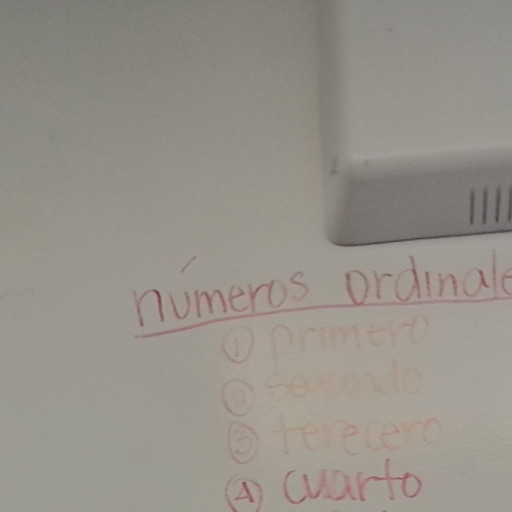 números ordinale
① primero
② segundo
③ terecero
④ cuarto